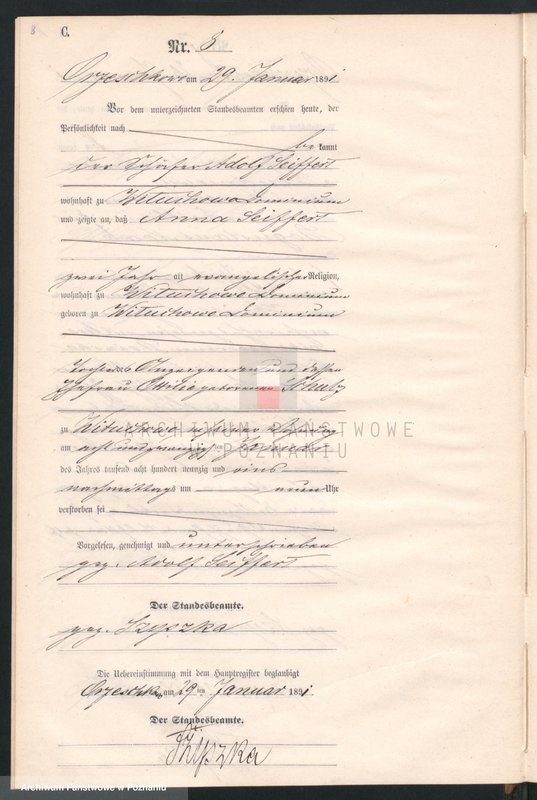 8
C.
Nr. 8
Orzeschkowo am 29. Januar 1891
Vor dem unterzeichneten Standesbeamten erschien heute, der
Persönlichkeit nach
be kannt
der Schäfer Adolf Seiffert
wohnhaft zu Wituchowo Dominium
und zeigte an, daß Anna Seiffert
zwei Jahr alt, evangelischer Religion,
wohnhaft zu Wituchowo Dominium
geboren zu Wituchowo Dominium
Tochter des Anzeigenden und dessen
Ehefrau Ottilie geborenen Schulz
ARCHIWUM PAŃSTWOWE
W POZNANIU
zu Wituchowo in seiner Wohnung
am acht und zwanzigsten Januar
des Jahres tausend acht hundert neunzig und eins
nachmittags um neun Uhr
verstorben sei
Vorgelesen, genehmigt und unterschrieben
gez. Adolf Seiffert
Der Standesbeamte.
gez. Szyszka
Die Uebereinstimmung mit dem Hauptregister beglaubigt
Orzeschkowo am 29 ten Januar 1891.
Der Standesbeamte.
Szyszka
Archiwum Państwowe w Poznaniu